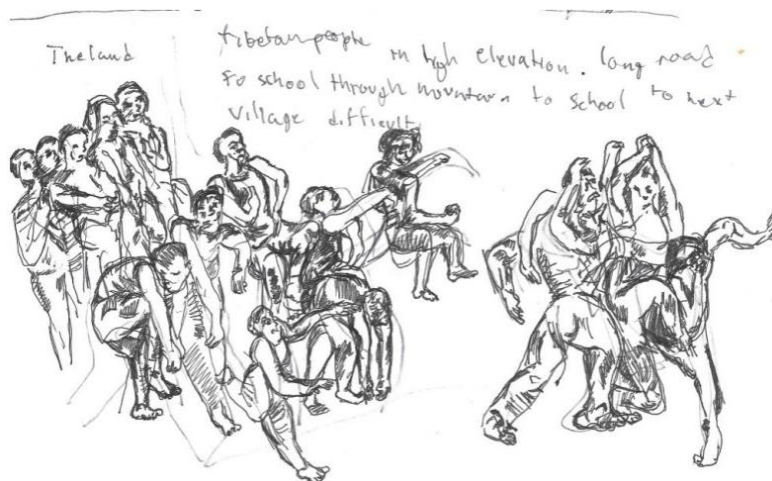 Theland
tibetan people in high elevation. long road
to school through mountain to school to next
village difficult